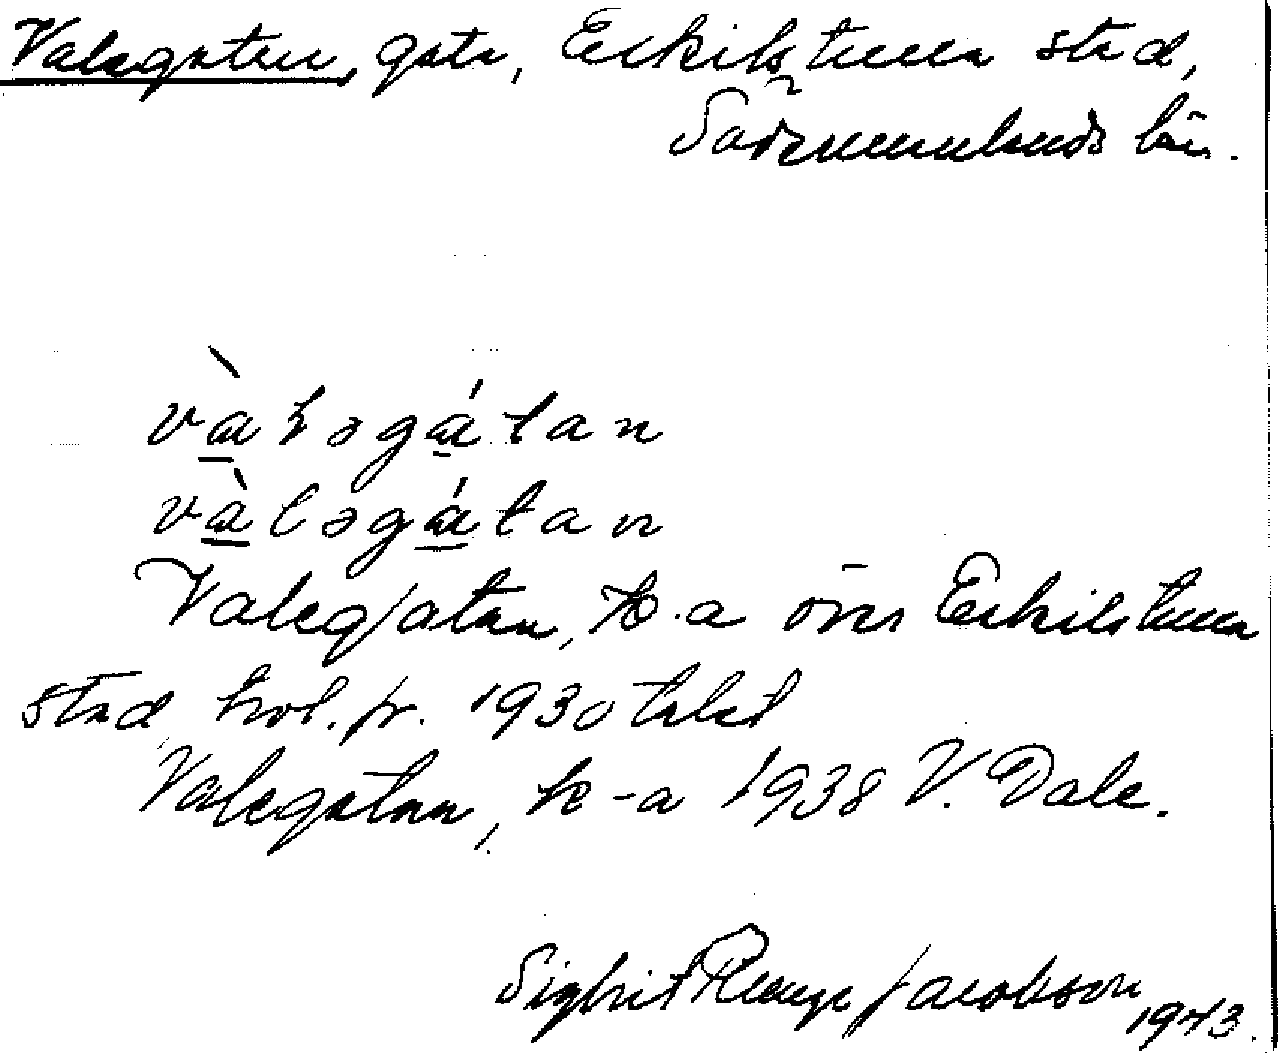 Valegatan, gata, Eskilstuna stad,
Södermanlands län.
vàləgátan
vàləgátan
Valegatan, k-a över Eskilstuna
stad, kol. fr. 1930talet
Valegatan, k-a 1938 V. Dale.
Sigbrit Plænge Jacobson
1943.